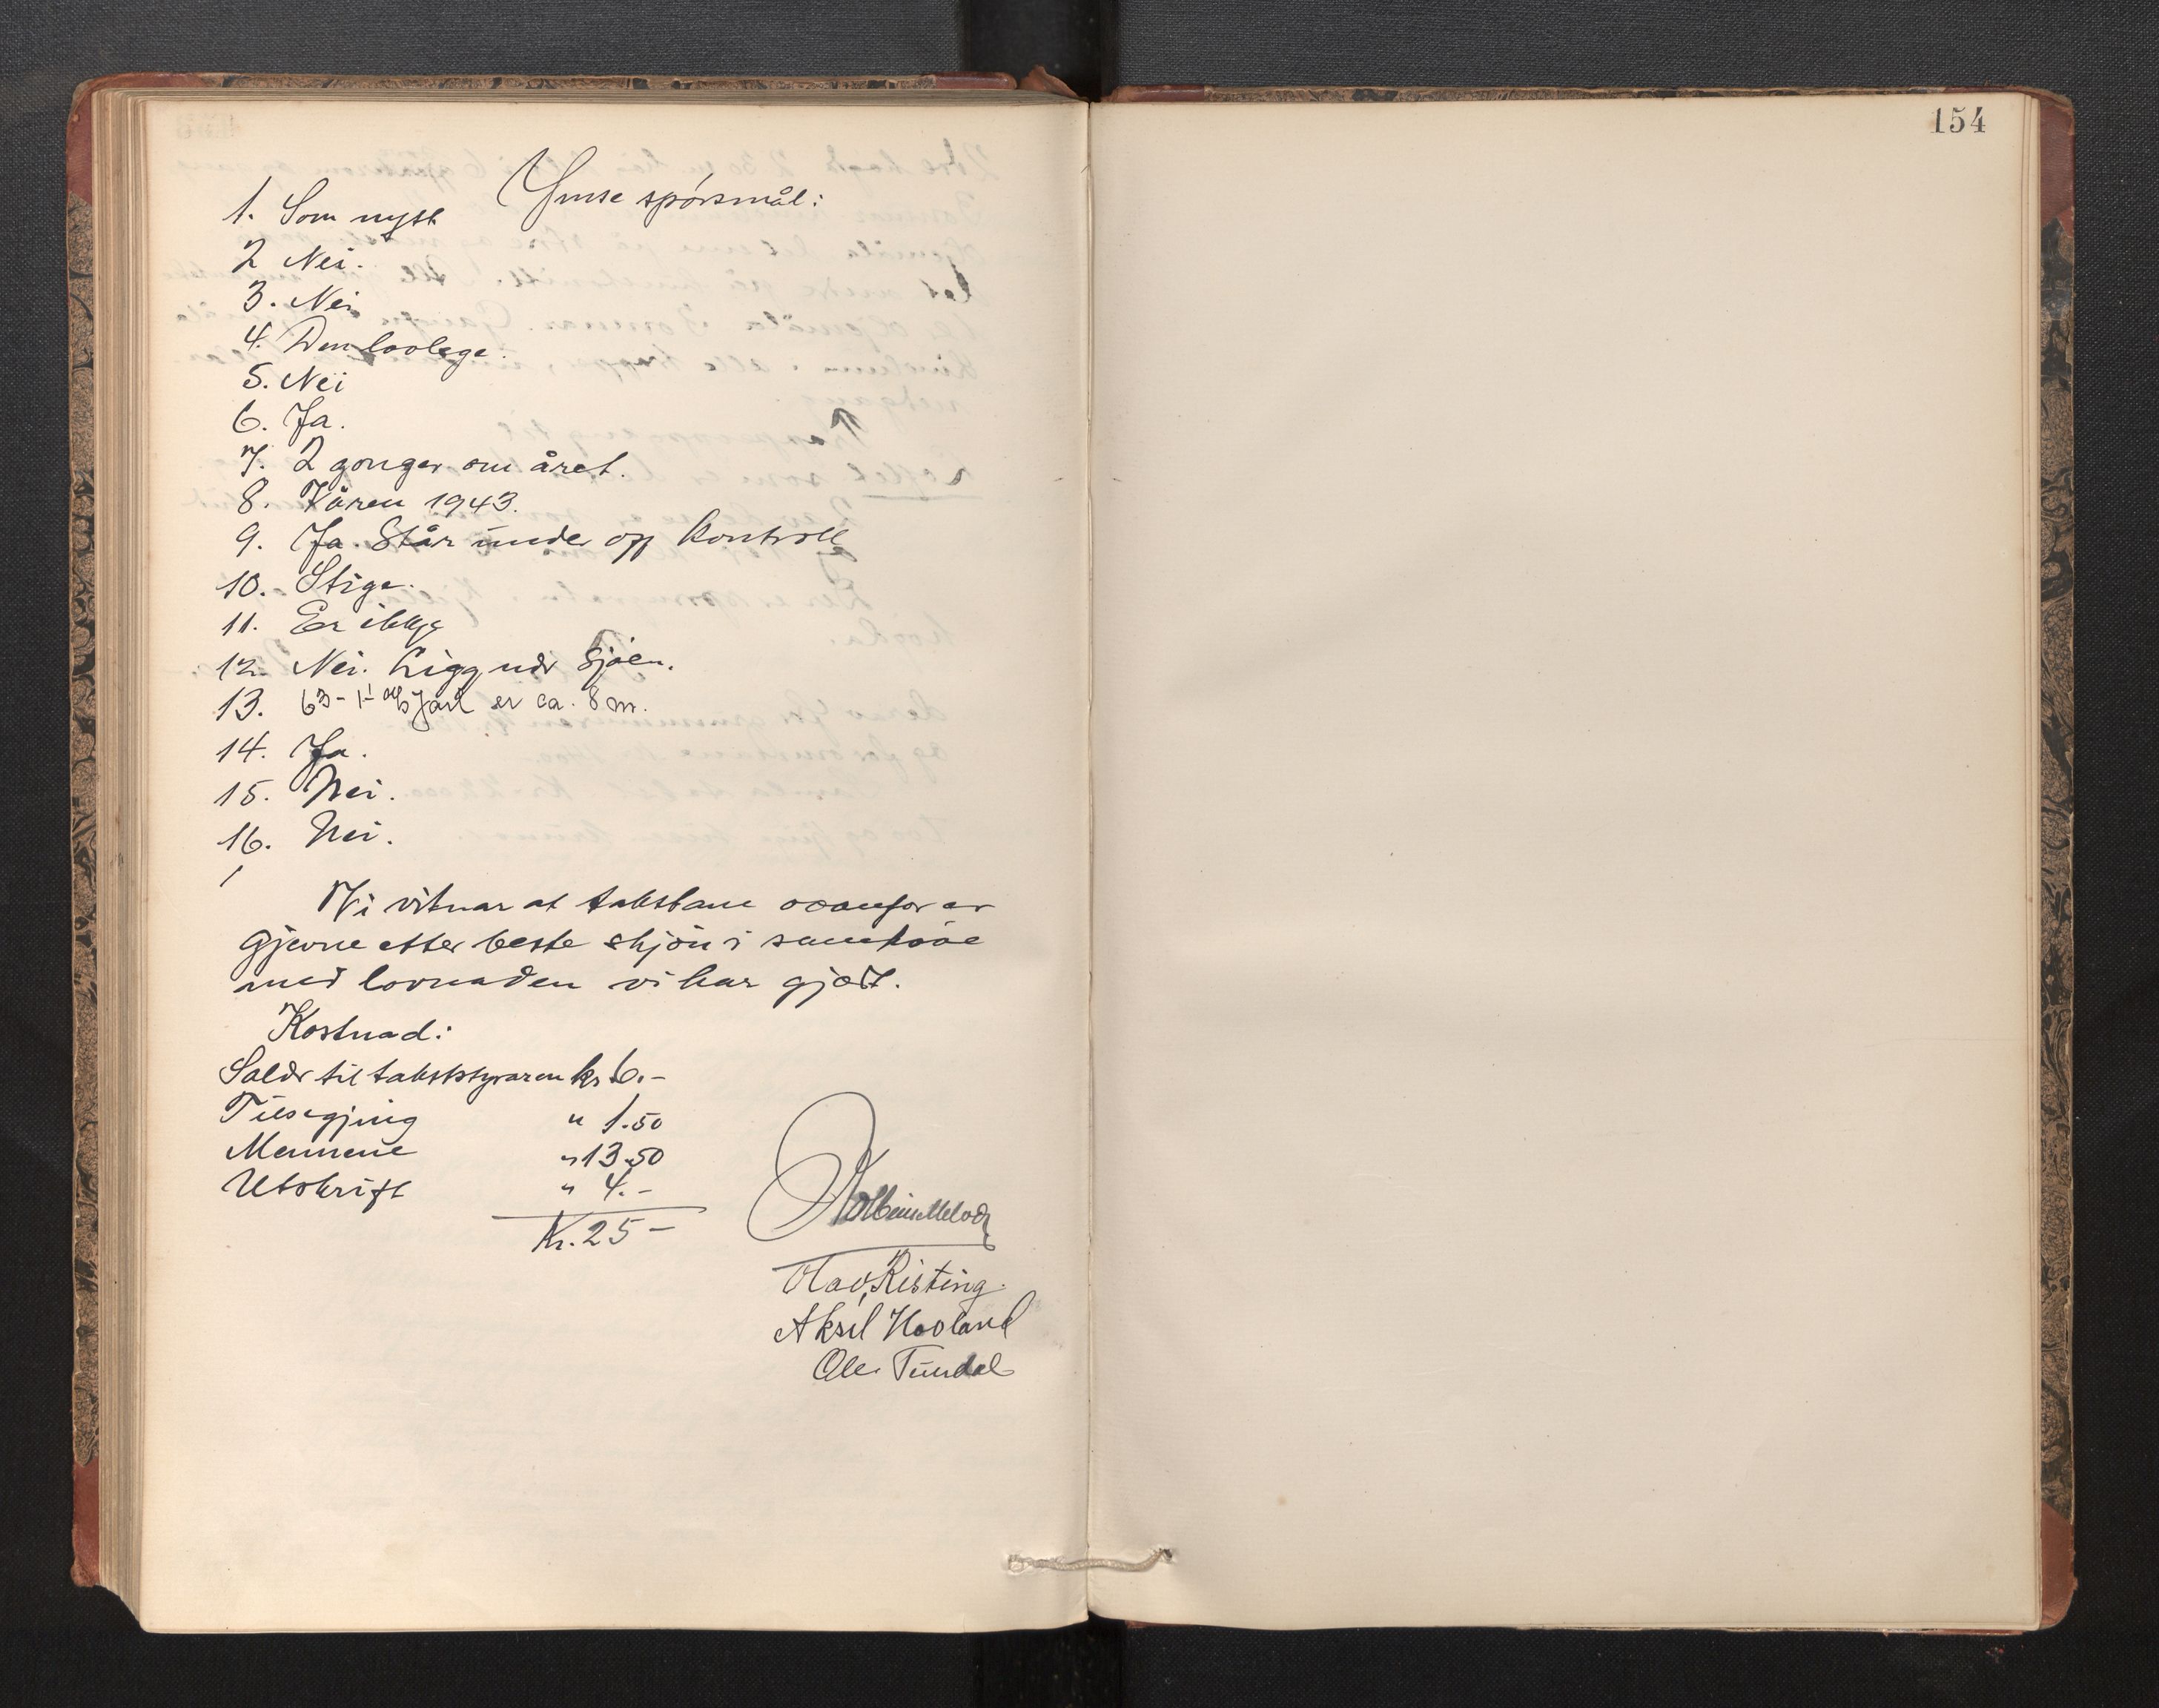 154
Ymse spörsmål:
1. Som nytt
2 Nei.
3. Nei
4. Den lovlege.
5. Nei
6. Ja.
7. 2 gonger om året.
8. Våren 1943.
9. Ja. Står under off kontroll
10. Stige.
11. Er ikkje
12. Nei. Ligg ved Sjöen.
13. er ca. 8 m.
14. Ja.
15. Nei.
16. Nei.
Vi vitnar at takstane ovanfor er
gjevne etter beste skjön i samhöve
med lovnaden vi har gjort.
Kostnad:
til takststyraren kr 6.-
Tilsegjing " 1.50
Mennene " 13.50
Utskrift " 4.-
Kr. 25 -
Olav Risting.
Aksel Hovland
Ole Tundal